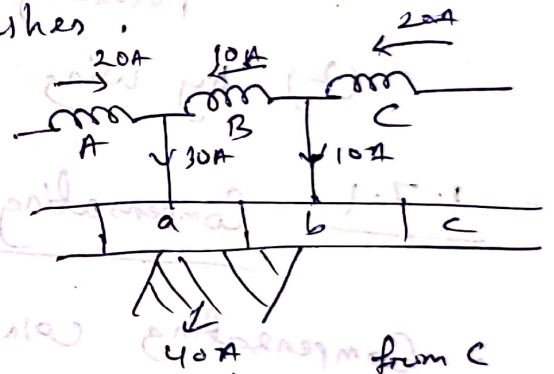 shes.
20A 10A 20A
A B C
30A 10A
a b c
40A from C